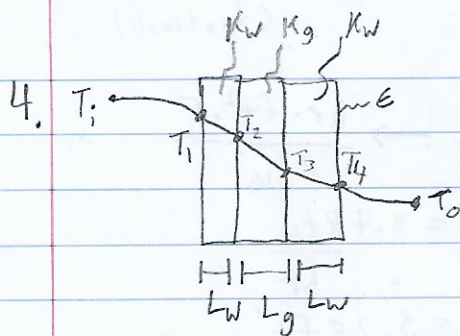 Kw Kg Kw
4. Ti ε
T1 T2 T3 T4 To
Lw Lg Lw